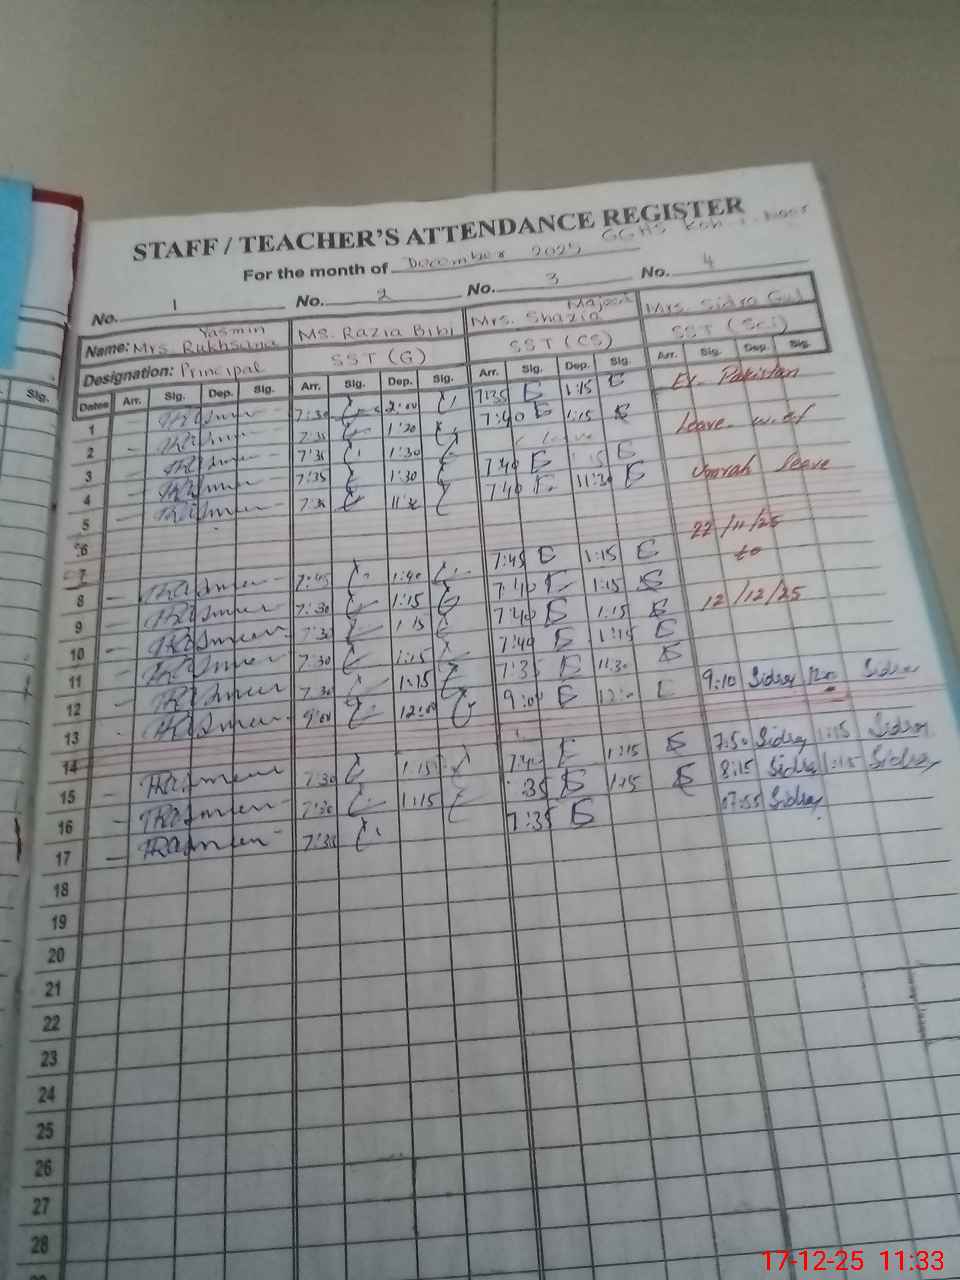 STAFF / TEACHER'S ATTENDANCE REGISTER
GGHS Koh-i-Noor
For the month of December 2025
No. 1 No. 2 No. 3 No. 4
Name: Mrs. Rukhsana Yasmin Ms. Razia Bibi Mrs. Shazia Majeed Mrs. Sidra Gul
Designation: Principal SST (G) SST (CS) SST (Sci)
Dates Arr. Sig. Dep. Sig. Arr. Sig. Dep. Sig. Arr. Sig. Dep. Sig. Arr. Sig. Dep. Sig.
1 7:30 2:00 7:35 1:15 Ex. Pakistan
2 1:20 7:40 1:15 Leave w.e.f
3 7:35 1:30 Leave
4 7:35 1:30 7:40 1:15 Umrah leave
5 7:35 11:30 7:40 11:30
6 22/11/25
7 to
8 7:45 1:40 7:45 1:15 12/12/25
9 7:30 1:15 7:40 1:15
10 7:30 1:15 7:40 1:15
11 7:30 1:15 7:40 1:15
12 7:30 1:15 7:35 11:30
13 9:00 12:00 9:00 12:00 9:10 Sidra Sidra
14
15 7:30 1:15 7:40 1:15 7:50 Sidra 1:15 Sidra
16 7:30 1:15 :35 1:15 8:15 Sidra 1:15 Sidra
17 7:30 7:35 07:55 Sidra
18
19
20
21
22
23
24
25
26
27
28
Sig.
17-12-25 11:33